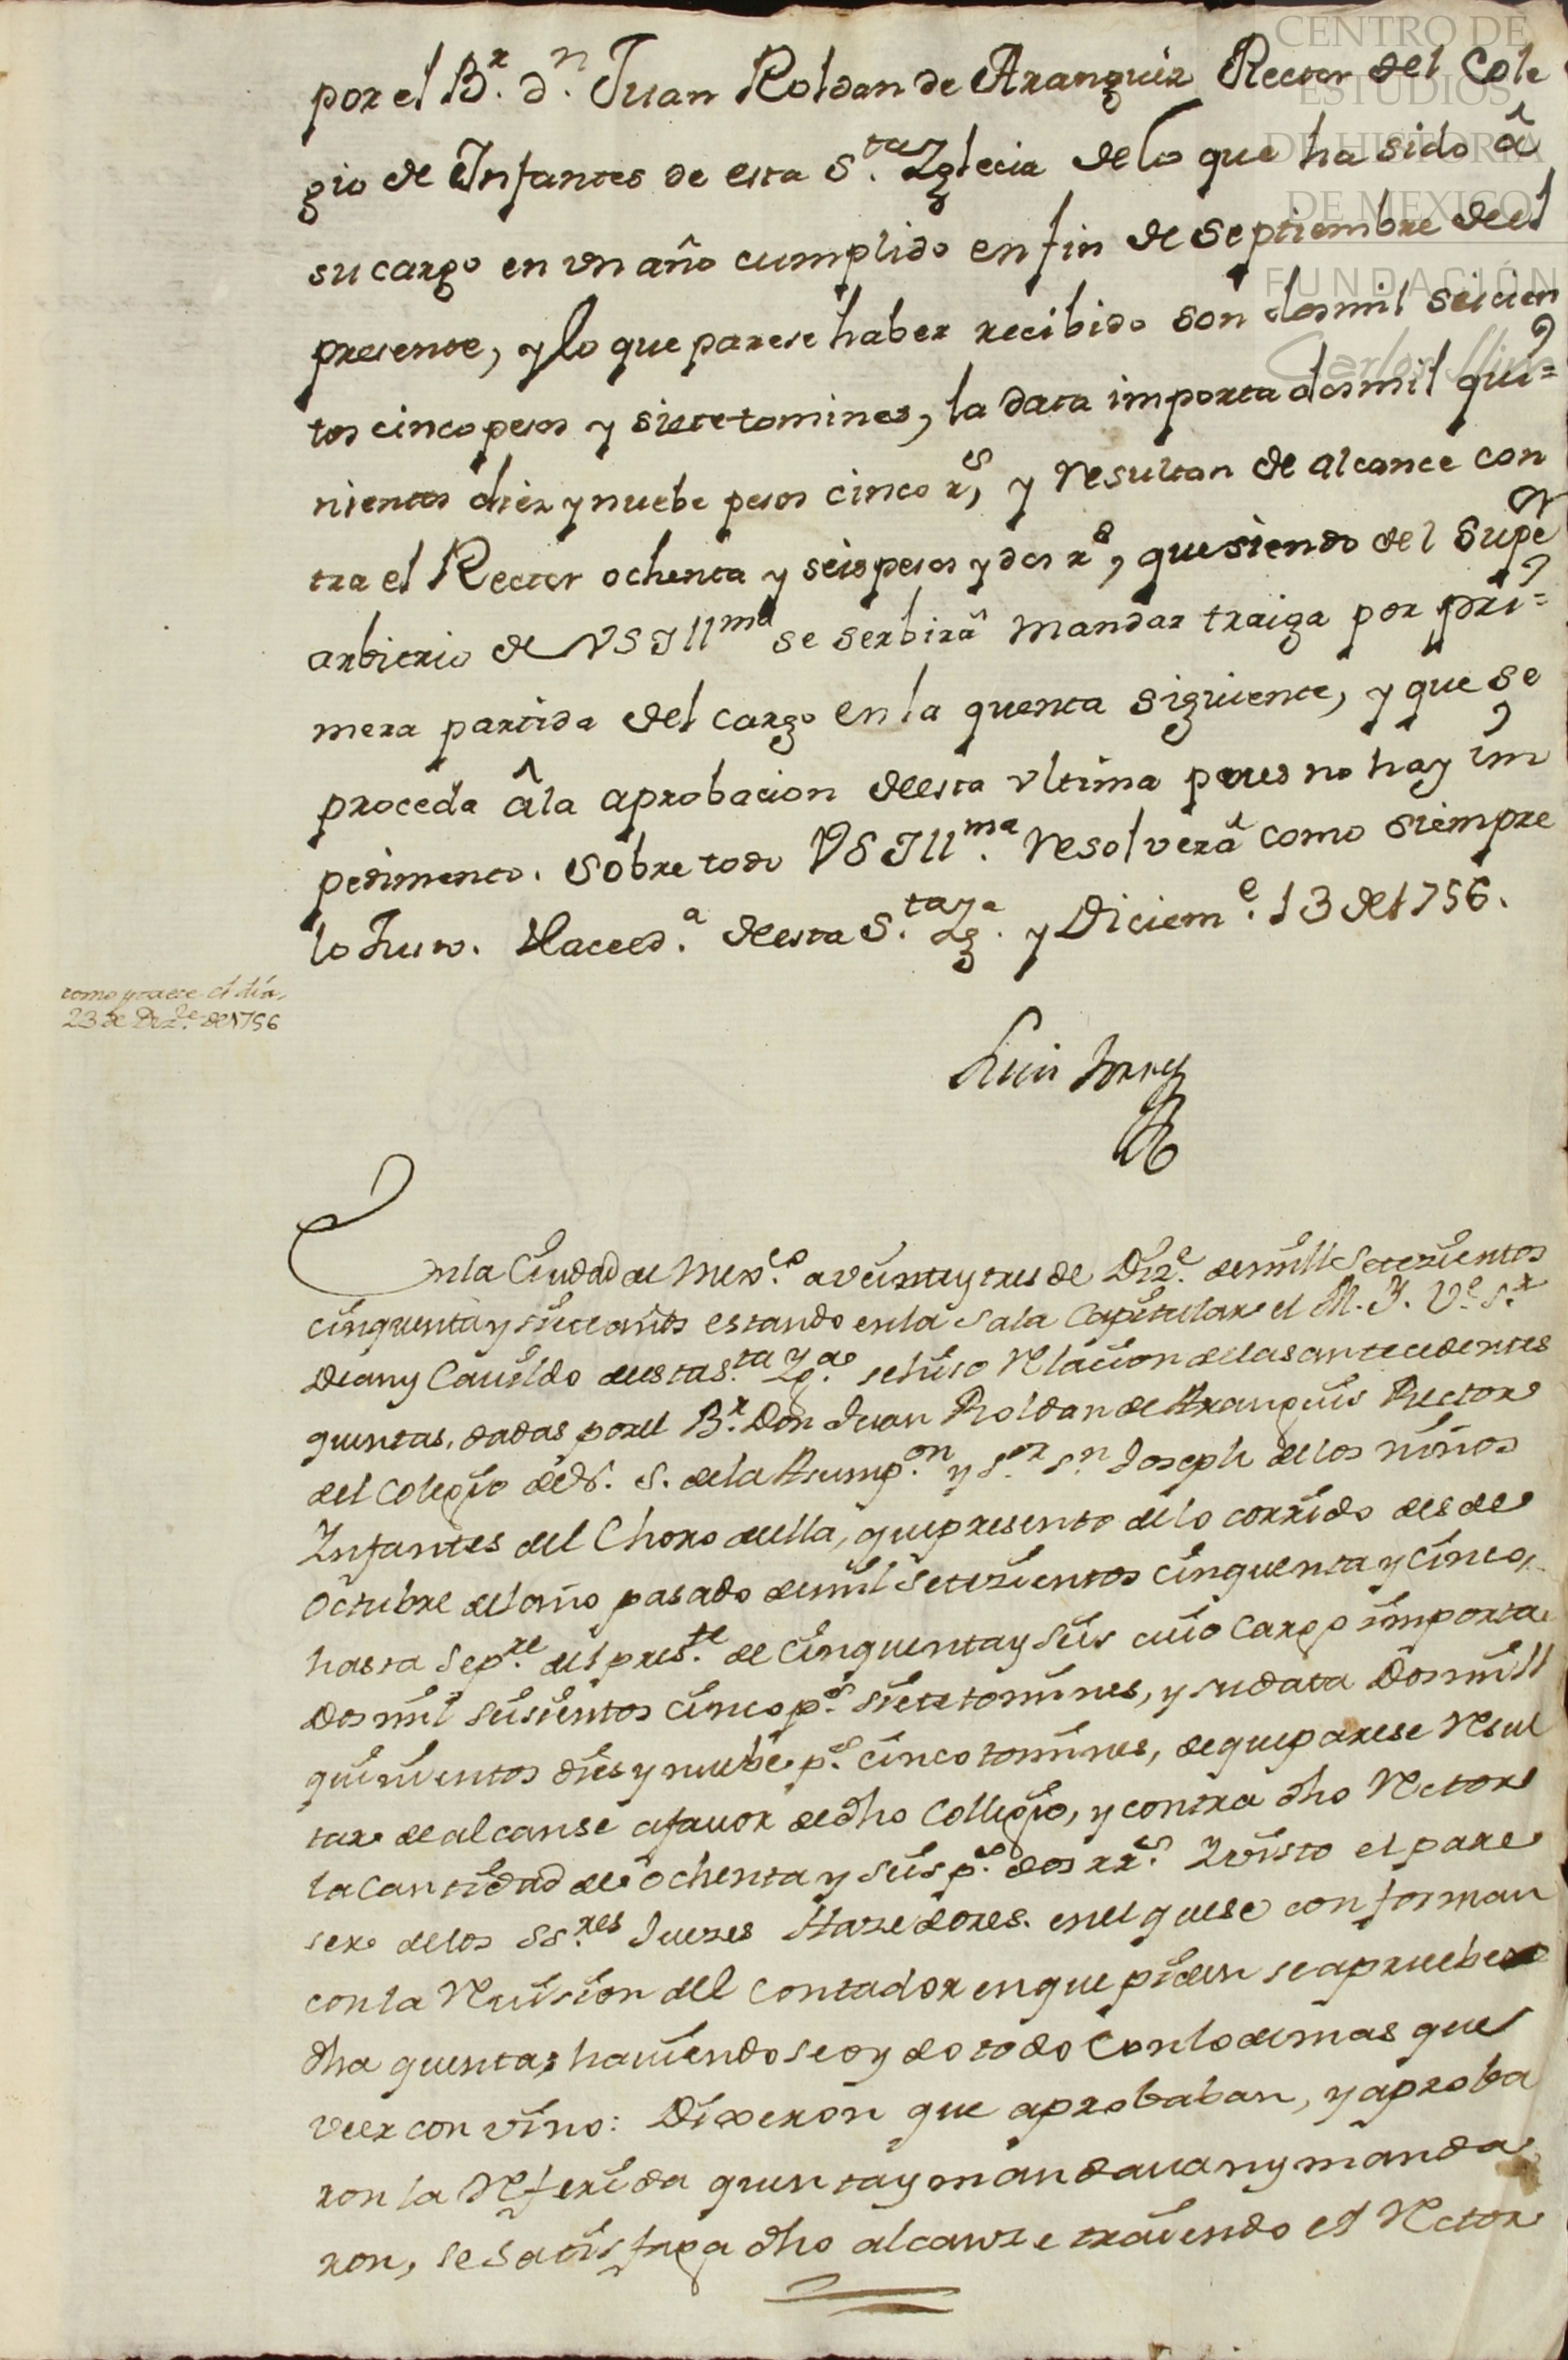 CENTRO DE
ESTUDIOS
DE HISTORIA
DE MEXICO
FUNDACIÓN
Carlos Slim
por el B.r d.n Juan Roldan de Aranguiz Rector del Cole
gio de Infantes de esta S.ta Yglecia de lo que ha sido â
su cargo en vn año cumplido en fin de Septiembre deel
presente, y lo que parese haber recibido son dosmil seicien
tos cinco pesos y siete tomines, la data importa dosmil qui=
nientos diez y nuebe pesos cinco r.s, y resultan de alcance con
tra el Rector ochenta y seis pesos y dos r.s, que siendo del Supe.or
arbitrio de VSIllma se serbirâ mandar traiga por pri=
mera partida del cargo en la quenta siguiente, y que se
proceda âla aprobacion deesta vltima pues no hay im
pedimento. Sobre todo VSIll.ma resolverâ como siempre
lo Justo. Haceed.a deesta S.ta Yg.a y Diciem.e 13 de1756.
como parece el dia
23 de Diz.e de1756
Luis Torres
En la Ciudad de Mex.co a veinte y tres de Diz.e de mill Setezientos
cinquenta y siete años estando en la Sala Capitular el M. Y. V.e S.r
Dean y Cavildo deesta S.ta Yg.a se hiso Relacion de las antecedentes
quentas, dadas por el B.r Don Juan Roldan de Aranguis Rector
del Colegio de N. S. de la Asump.on y S.or S.n Joseph de los niños
Ynfantes del Choro de ella, que presento de lo corrido desde
Octubre del año pasado de mil Setezientos cinquenta y cinco,
hasta Sep.re del pres.te de cinquenta y seis cuio cargo importa
Dos mil seisientos cinco p.s siete tomines, y su data Dos mill
quinientos dies y nuebe p.s cinco tomines, de que parese Resul
tar de alcanse a favor de dho Collegio, y contra dho Rector
la cantidad de ochenta y seis p.s dos rr.s Y visto el pare
ser de los SS.res Juezes Hazedores. en el que se conforman
con la Revision del Contador en que piden se apruebe
dha quenta; haviendose oydo todo con lo demas que
veer convino: Dixeron que aprobaban, y aproba
ron la Referida quenta y mandavan y manda
ron, se satisfaga dho alcanze trayendo el Rector